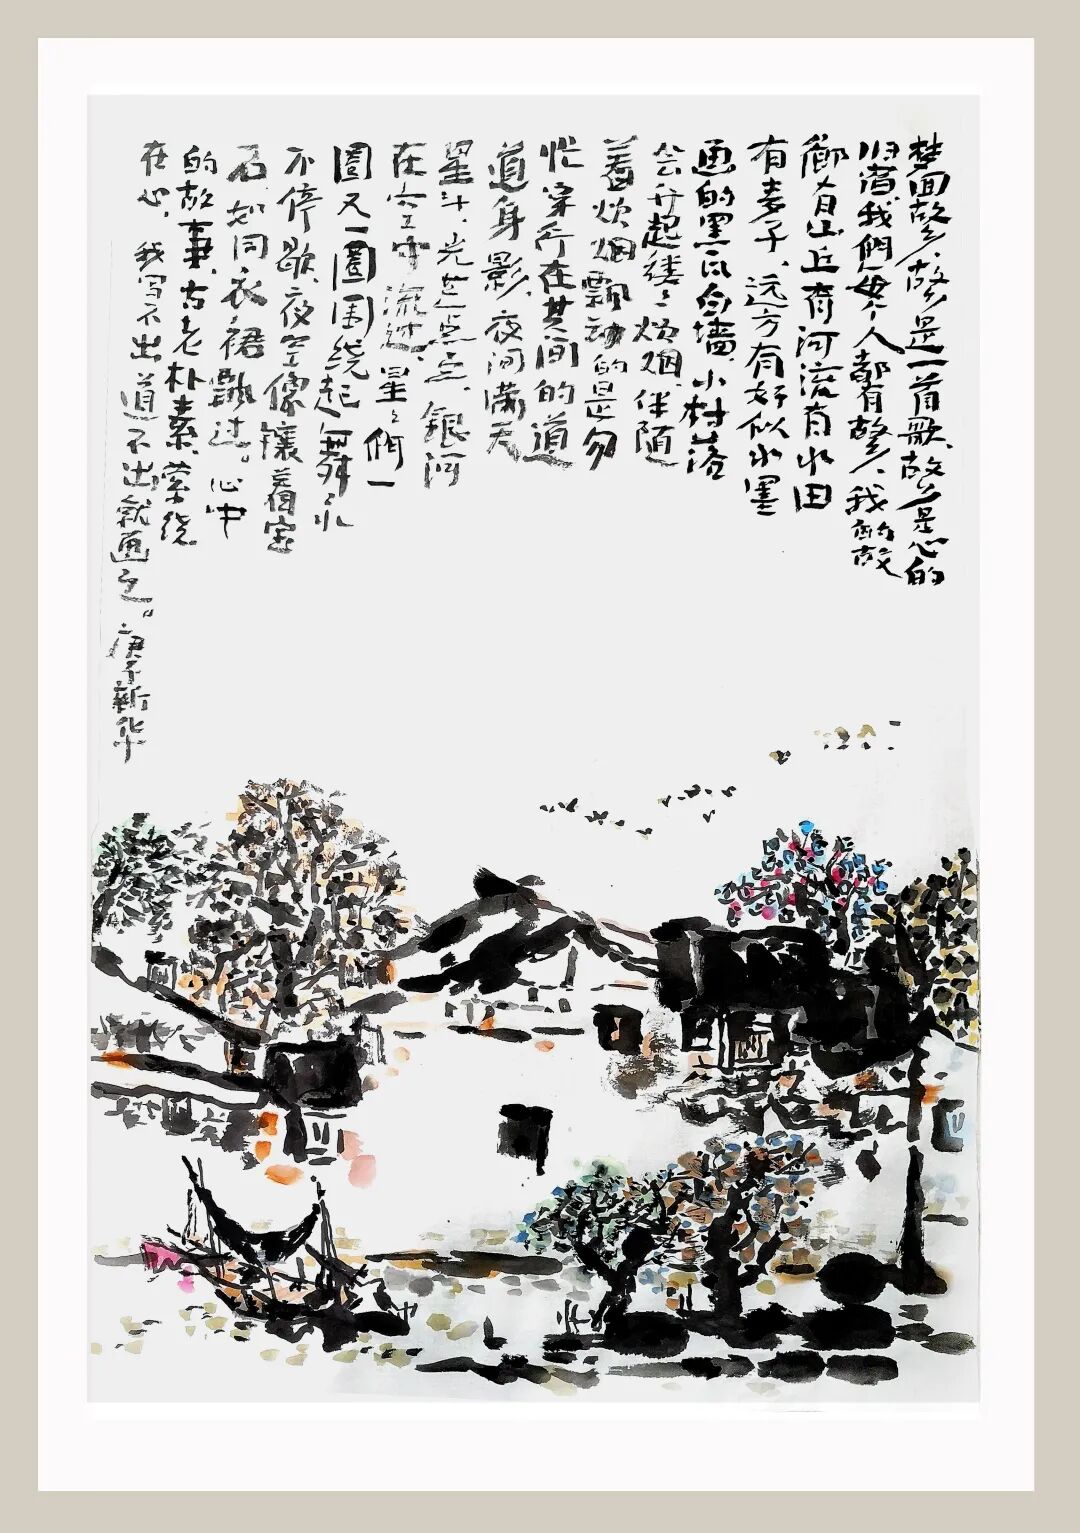 梦回故乡,故乡是一首歌,故乡是心的
归宿,我們每个人都有故乡,我的故
鄉有山丘有河流有水田
有麦子,远方有好似水墨
画的黑瓦白墙,小村落
会升起缕々炊烟,伴随
着炊烟飘动的是匆
忙穿行在其间的道
道身影,夜间满天
星斗,光芒点点,银河
在空中流过,星々們一
圈又一圈围绕起舞,永
不停歇,夜空像镶着宝
石如同衣裙飘过。心中
的故事,古老朴素,萦绕
在心,我写不出道不出就画之。庚子新华